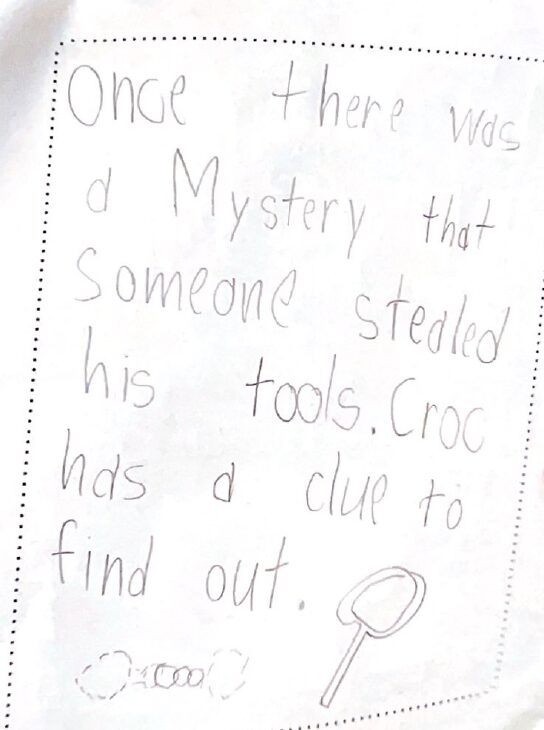 Once there was
a Mystery that
Someone stealed
his tools. Croc
has a clue to
find out.